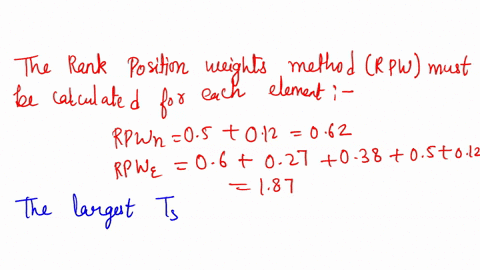 The Rank Position weights method (RPW) must
be calculated for each element :-
RPWn = 0.5 + 0.12 = 0.62
RPWε = 0.6 + 0.27 + 0.38 + 0.5 + 0.12
= 1.87
The largest Ts